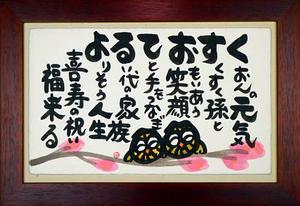 くおんの元気
すくすく孫と
おもいあう
笑顔
てと手をつなぎ
るい代の家族
よりそう人生
喜寿の祝い
福来る